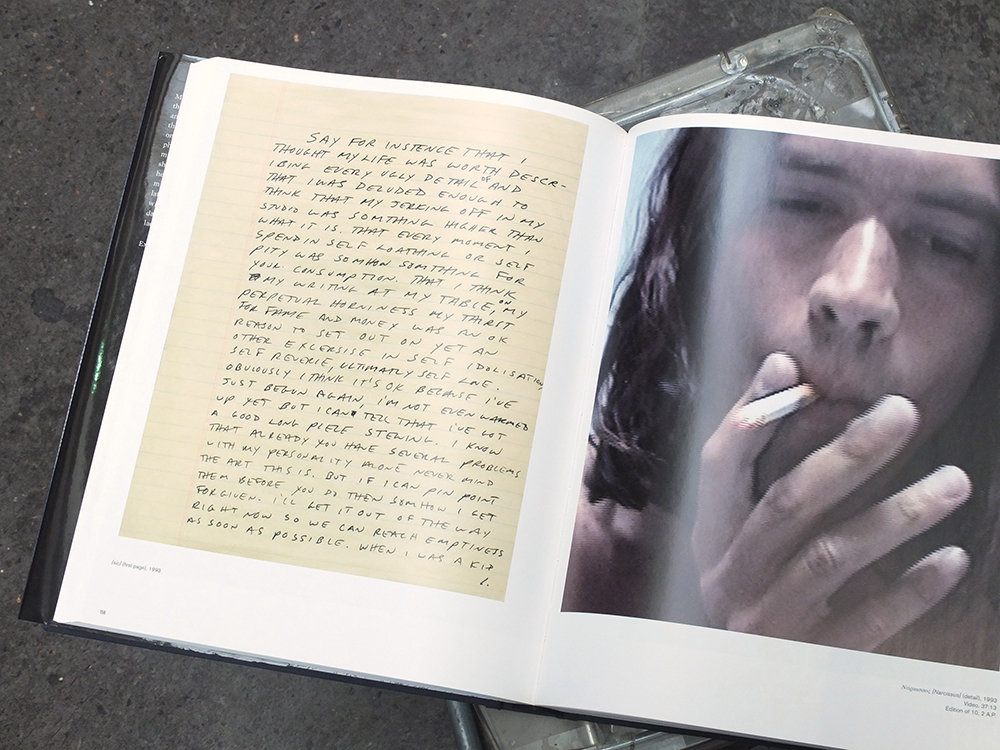 SAY FOR INSTENCE THAT I
THOUGHT MY LIFE WAS WORTH DESCR-
IBING EVERY UGLY DETAIL OF AND
THAT I WAS DELUDED ENOUGH TO
THINK THAT MY JERKING OFF IN MY
STUDIO WAS SOMTHING HIGHER THAN
WHAT IT IS. THAT EVERY MOMENT I
SPEND IN SELF LOATHING OR SELF
PITY WAS SOMHOW SOMTHING FOR
YOUR CONSUMPTION. THAT I THINK
MY WRITING AT MY TABLE, ON MY
PERPETUAL HORNINESS MY THIRST
FOR FAME AND MONEY WAS AN OK
REASON TO SET OUT ON YET AN
OTHER EXCERSISE IN SELF IDOLISATION
SELF REVERIE, ULTIMATLY SELF LOVE.
OBVIOUSLY I THINK IT'S OK BECAUSE I'VE
JUST BEGUN AGAIN, I'M NOT EVEN WARMED
UP YET BUT I CAN TELL THAT I'VE GOT
A GOOD LONG PIECE STEWING. I KNOW
THAT ALREADY YOU HAVE SEVERAL PROBLEMS
WITH MY PERSONALITY ALONE NEVER MIND
THE ART THIS IS. BUT IF I CAN PIN POINT
THEM BEFORE YOU DO THEN SOMHOW I GET
FORGIVEN. I'LL GET IT OUT OF THE WAY
RIGHT NOW SO WE CAN REACH EMPTINESS
AS SOON AS POSSIBLE. WHEN I WAS A KID
1.
[sic] (first page), 1993
[Narcissus] (detail), 1993
Video, 37:13
Edition of 10, 2 A.P.